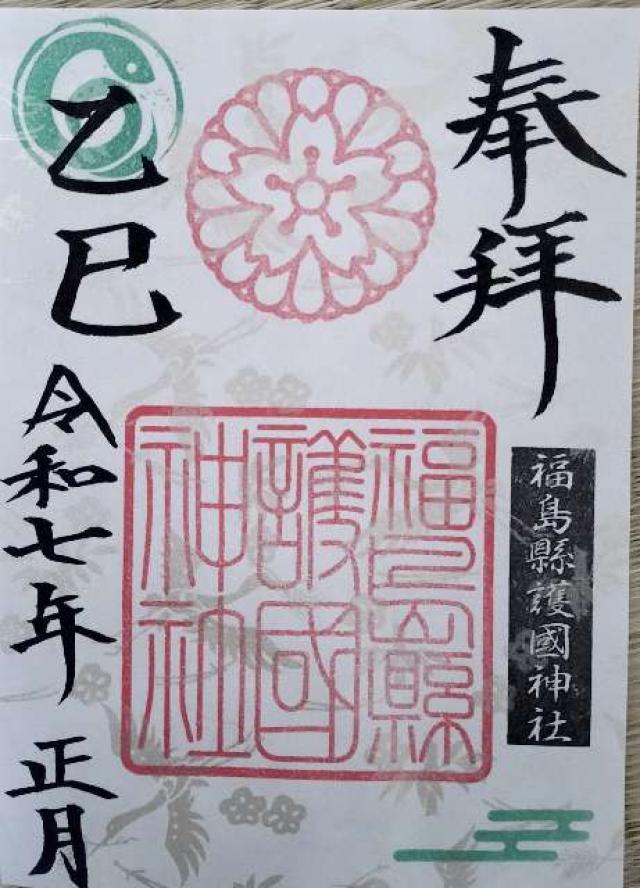 奉拝
福島縣護國神社
福島縣
護國
神社
乙巳
令和七年 正月